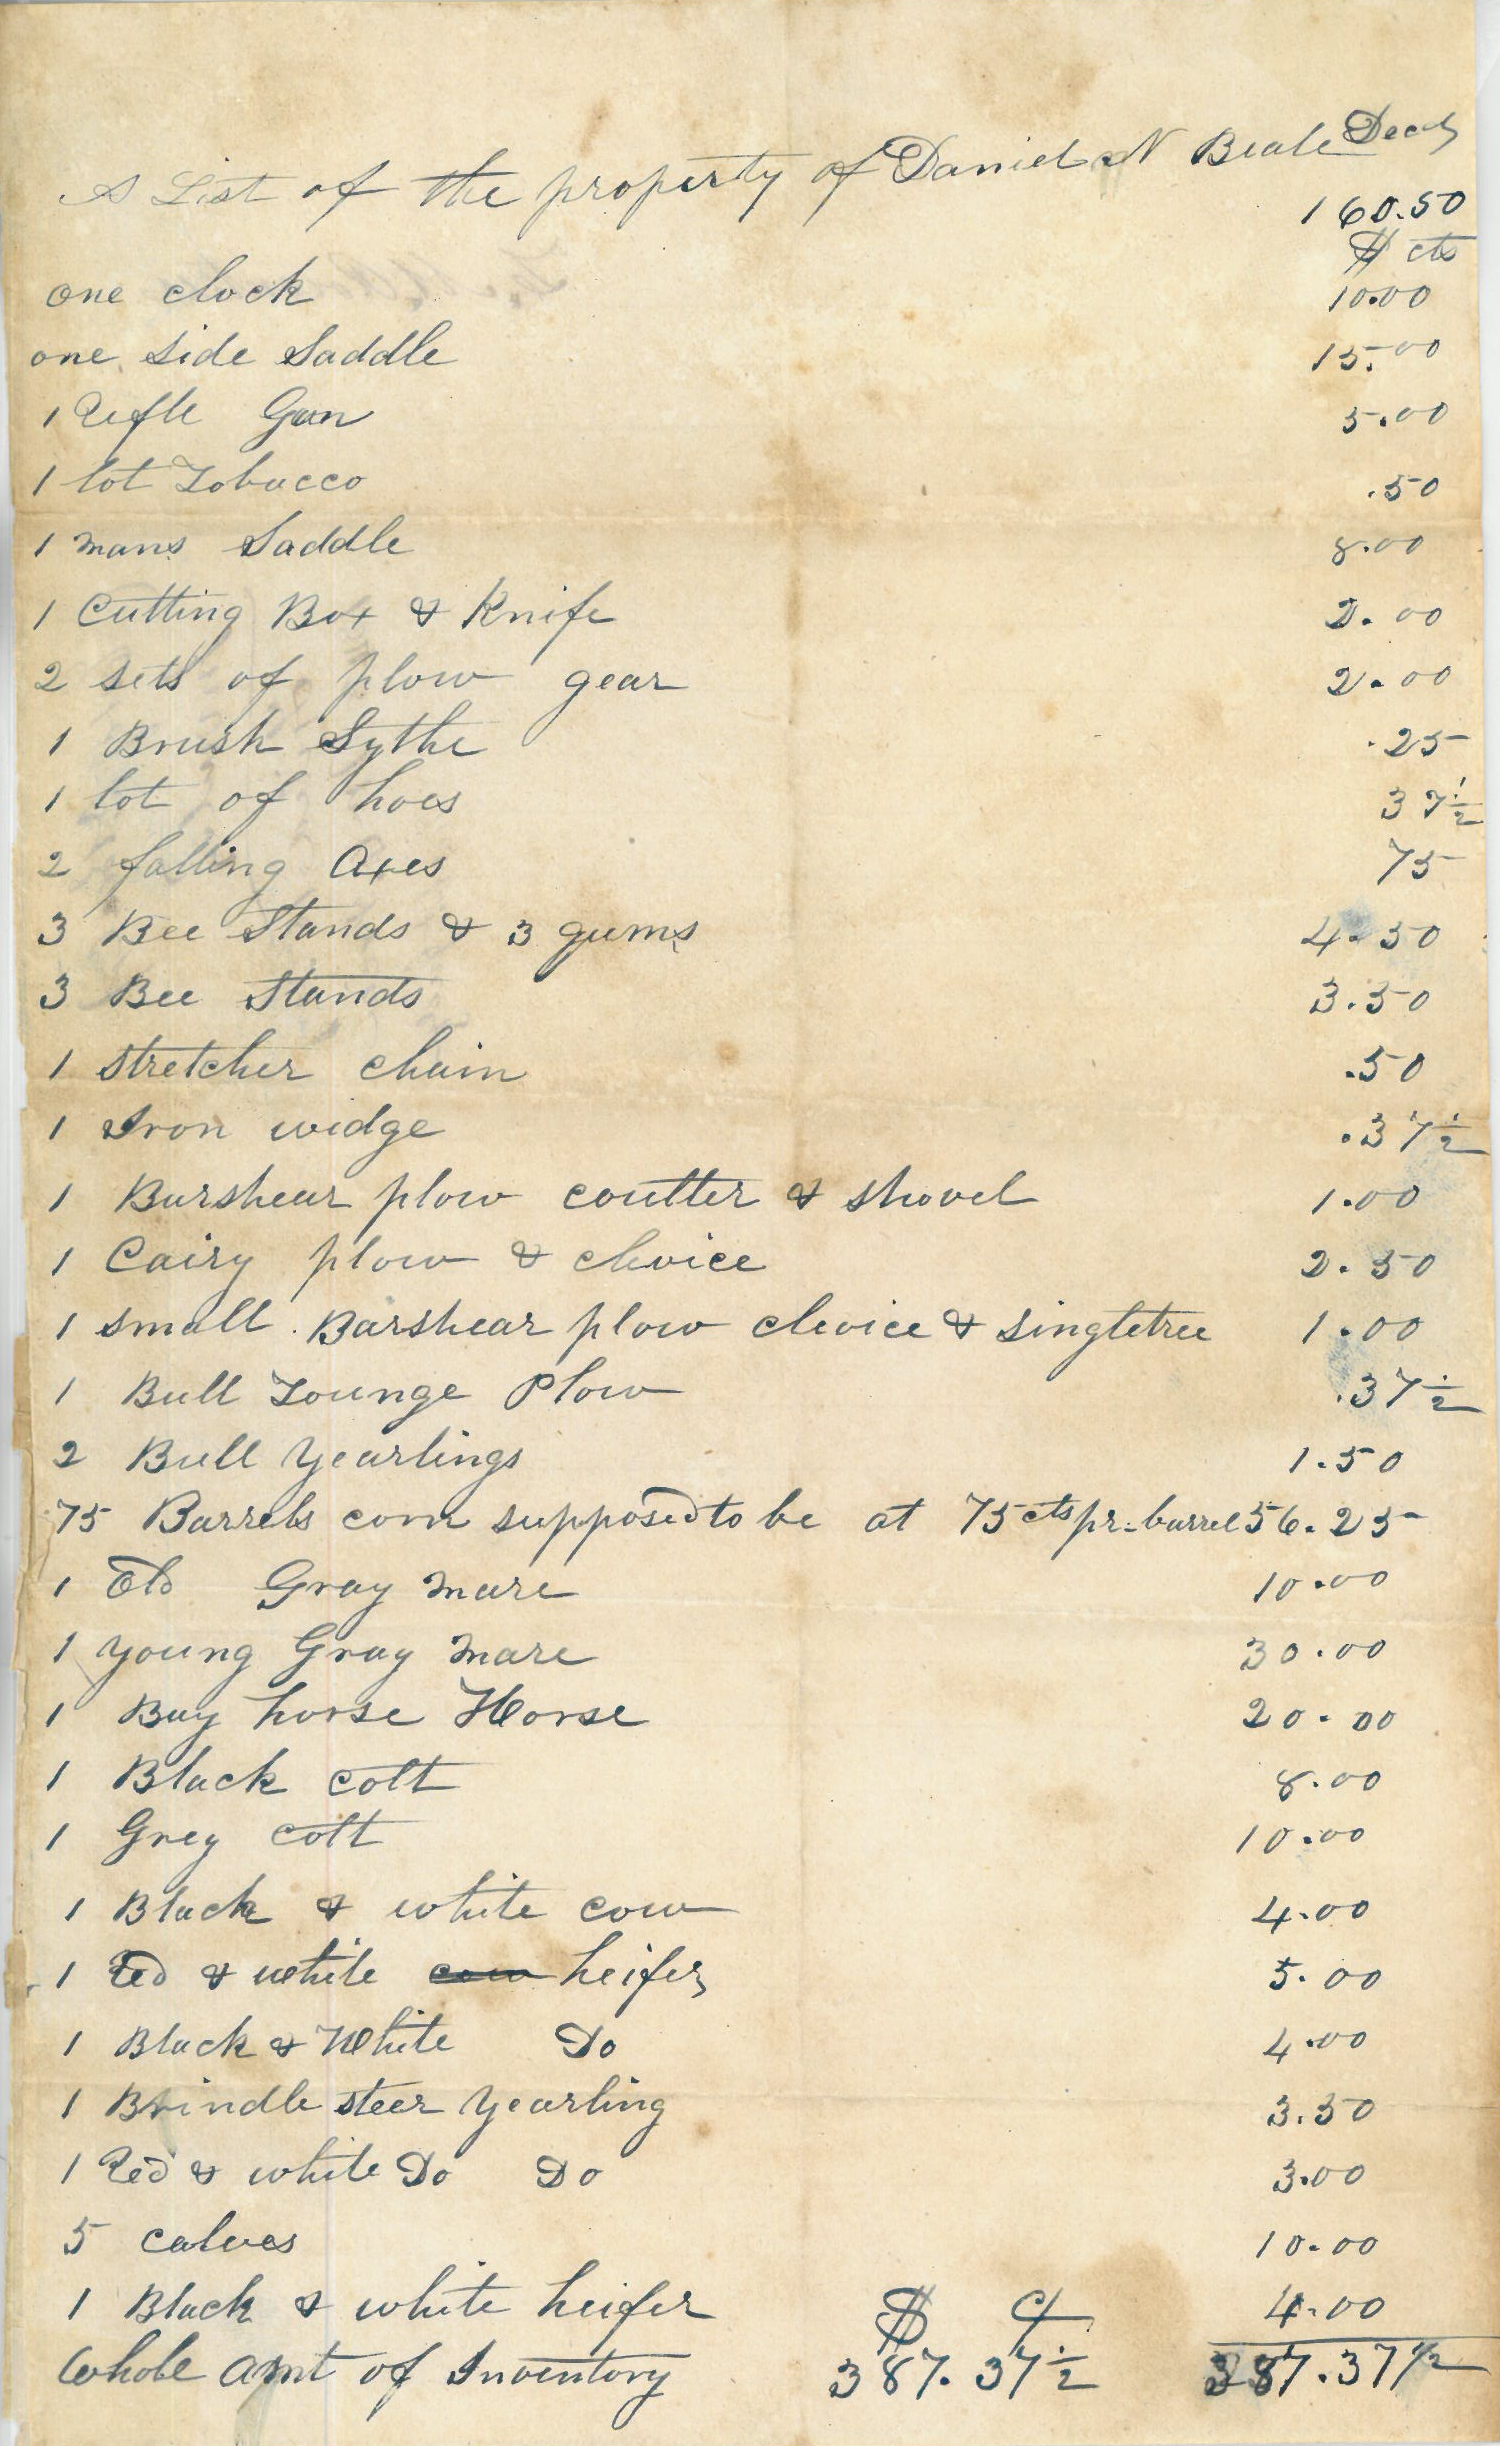 A List of the property of Daniel N Beale Decd
160.50
$ cts
one clock 10.00
one side Saddle 15.00
1 Rifle Gun 5.00
1 lot Tobacco .50
1 mans Saddle 8.00
1 Cutting Box & Knife 2.00
2 sets of plow gear 2.00
1 Brush Sythe .25
1 lot of hoes 37 1/2
2 falling Axes 75
3 Bee Stands & 3 gums 4.50
3 Bee Stands 3.50
1 stretcher chain .50
1 Iron widge .37 1/2
1 Barshear plow coulter & shovel 1.00
1 Cairy plow & clevice 2.50
1 small Barshear plow clevice & singletree 1.00
1 Bull Tounge Plow .37 1/2
2 Bull yearlings 1.50
75 Barrels corn supposed to be at 75 cts pr. barrel 56.25
1 Old Gray mare 10.00
1 young Gray mare 30.00
1 Bay horse Horse 20.00
1 Black colt 8.00
1 Grey colt 10.00
1 Black & white cow 4.00
1 Red & white cow heifer 5.00
1 Black & White Do 4.00
1 Brindle steer yearling 3.50
1 Red & white Do Do 3.00
5 calves 10.00
1 Black & white heifer 4.00
$ ct
Whole amt of Inventory 387.37 1/2 387.37 1/2